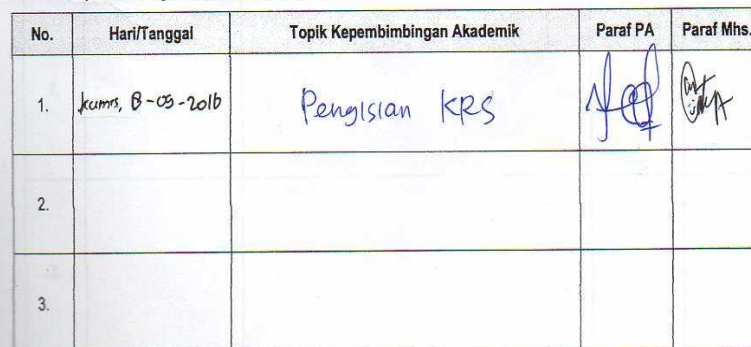 No. Hari/Tanggal Topik Kepembimbingan Akademik Paraf PA Paraf Mhs.
1. kamis, 8-09-2016 Pengisian KRS
2.
3.